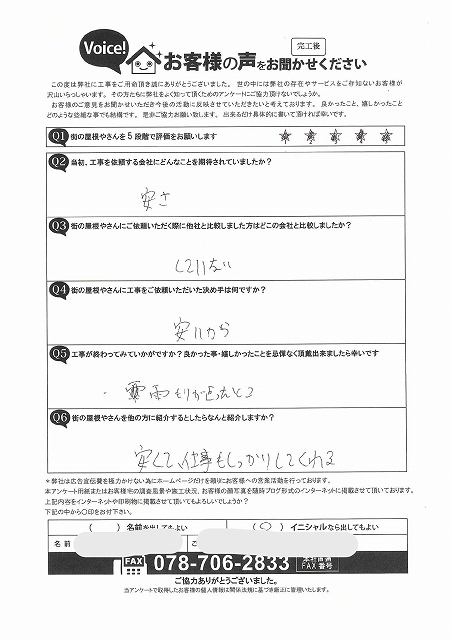 Voice!
完工後
お客様の声をお聞かせください
この度は弊社に工事をご用命頂き誠にありがとうございました。世の中には弊社の存在やサービスをご存知ないお客様が
沢山いらっしゃいます。その方たちに弊社をよく知って頂くためのアンケートにご協力頂けないでしょうか。
お客様のご意見をお聞かせいただき今後の活動に反映させていただきたいと考えております。良かったこと、嬉しかったこと
どのような些細な事でも結構です。是非ご協力お願い致します。出来るだけ具体的に書いて頂ければ幸いです。
Q1 街の屋根やさんを5段階で評価をお願いします ★ ★ ★ ★ ★
Q2 当初、工事を依頼する会社にどんなことを期待されていましたか?
安さ
Q3 街の屋根やさんにご依頼いただく際に他社と比較しました方はどこの会社と比較しましたか?
していない
Q4 街の屋根やさんに工事をご依頼いただいた決め手は何ですか?
安いから
Q5 工事が終わってみていかがですか?良かった事・嬉しかったことを忌憚なく頂戴出来ましたら幸いです
雨もりが
Q6 街の屋根やさんを他の方に紹介するとしたらなんと紹介しますか?
安くて、仕事もしっかりしてくれる
*弊社は広告宣伝費を極力かけない為にホームページだけを頼りにお客様への営業活動を行っております。
本アンケート用紙またはお客様宅の調査風景や施工状況、お客様の顔写真を随時ブログ形式のインターネットに掲載させて頂いております。
上記内容をインターネットや印刷物に掲載させて頂いてもよろしいでしょうか?
下記の中から〇印をお付け下さい。
( ) 名前を出してもよい ( 〇 ) イニシャルなら出してもよい
名前 ご
FAX 078-706-2833 FAX番号
ご協力ありがとうございました。
当アンケートで取得したお客様の個人情報は関係法規に基づき厳正に管理いたします。